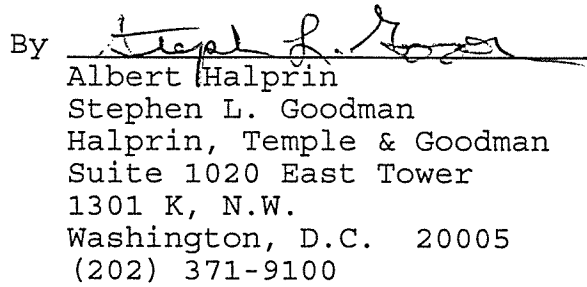 By Stephen L. Goodman
Albert Halprin
Stephen L. Goodman
Halprin, Temple & Goodman
Suite 1020 East Tower
1301 K, N.W.
Washington, D.C. 20005
(202) 371-9100